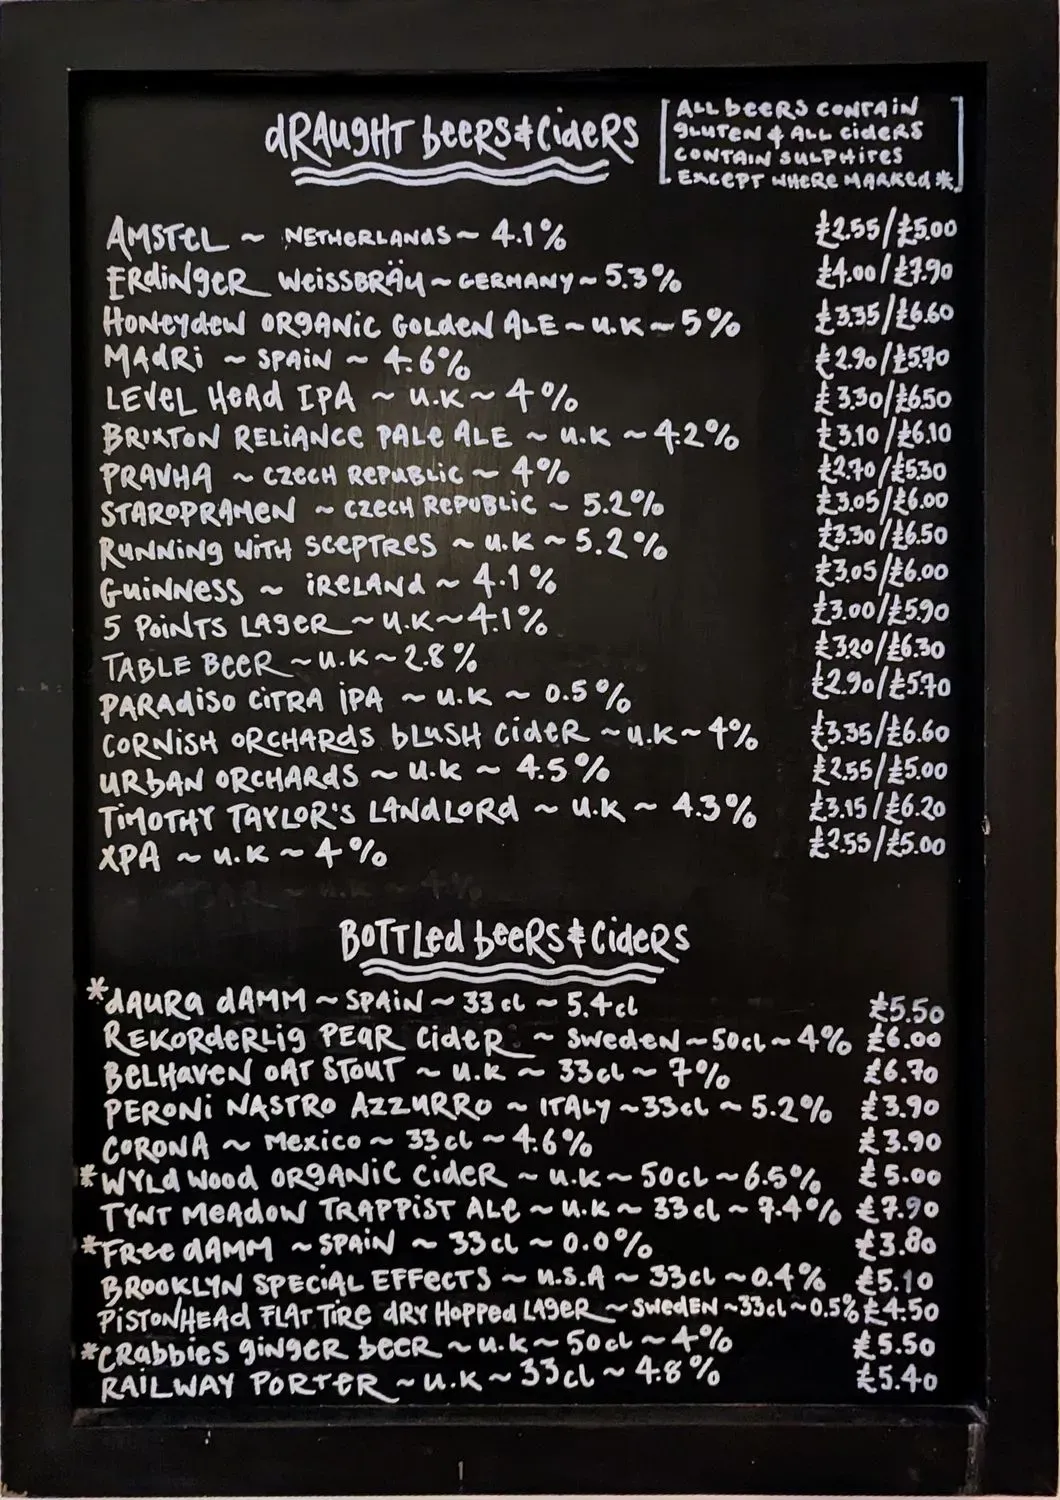 dRAUgHT beeRS & CideRS
[ALL beeRS CONTAIN
gLUTEN & ALL CideRS
CONTAIN SULPHITES
EXCEPT WHERE MARKED *]
AMSTEL ~ NETHERLANdS ~ 4.1% £2.55/£5.00
ERdiNgER WeiSSBRÄU ~ GERMANY ~ 5.3% £4.00/£7.90
HONeydew ORgANiC GOLdeN ALE ~ U.K ~ 5% £3.35/£6.60
MAdRi ~ SPAiN ~ 4.6% £2.90/£5.70
LEVeL HeAd IPA ~ U.K ~ 4% £3.30/£6.50
BRIXTON RELiANCe PALe ALE ~ U.K ~ 4.2% £3.10/£6.10
PRAVHA ~ CZECH REPUBLiC ~ 4% £2.70/£5.30
STAROPRAMEN ~ CZECH REPUBLiC ~ 5.2% £3.05/£6.00
RUNNiNg WiTH SCEPTRES ~ U.K ~ 5.2% £3.30/£6.50
GUiNNESS ~ iRELANd ~ 4.1% £3.05/£6.00
5 POiNTS LAgER ~ U.K ~ 4.1% £3.00/£5.90
TABLE BEER ~ U.K ~ 2.8% £3.20/£6.30
PARAdiSO CiTRA iPA ~ U.K ~ 0.5% £2.90/£5.70
CORNiSH ORCHARdS bLUSH CideR ~ U.K ~ 4% £3.35/£6.60
URbAN ORCHARdS ~ U.K ~ 4.5% £2.55/£5.00
TiMOTHY TAYLOR'S LANdLORd ~ U.K ~ 4.3% £3.15/£6.20
XPA ~ U.K ~ 4% £2.55/£5.00
BOTTLed beeRS & CideRS
*dAURA dAMM ~ SPAiN ~ 33cl ~ 5.4cl £5.50
REKORdeRLig PEAR CideR ~ SwedeN ~ 50cl ~ 4% £6.00
BELHAVEN OAT STOUT ~ U.K ~ 33cl ~ 7% £6.70
PERONi NASTRO AZZURRO ~ ITALY ~ 33cl ~ 5.2% £3.90
CORONA ~ Mexico ~ 33cl ~ 4.6% £3.90
*WYLd Wood ORgANiC CideR ~ U.K ~ 50cl ~ 6.5% £5.00
TYNT MeAdOW TRAPPiST ALe ~ U.K ~ 33cl ~ 7.4% £7.90
*FRee dAMM ~ SPAiN ~ 33cl ~ 0.0% £3.80
BROOKLYN SPECiAL EFFeCTS ~ U.S.A ~ 33cl ~ 0.4% £5.10
PiSTONHEAd FLAT TiRe dRY HOPPed LAgeR ~ SwedEN ~ 33cl ~ 0.5% £4.50
*CRAbbiES giNgER beeR ~ U.K ~ 50cl ~ 4% £5.50
RAiLWAY PORTeR ~ U.K ~ 33cl ~ 4.8% £5.40